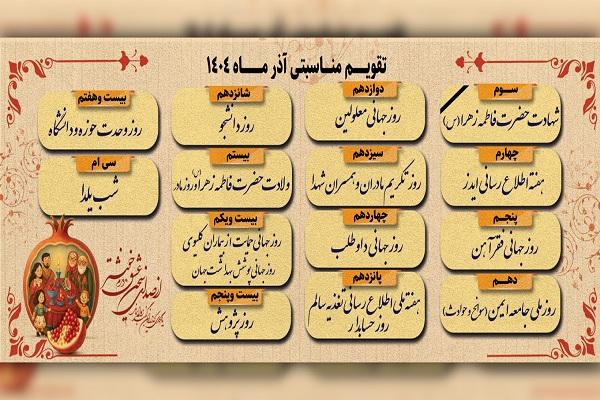 تقویم مناسبتی آذر ماه ۱۴۰۴
سوم
شهادت حضرت فاطمه زهرا (س)
چهارم
هفته اطلاع رسانی ایدز
پنجم
روز جهانی فقر آهن
دهم
روز ملی جامعه ایمن (سوانح و حوادث)
دوازدهم
روز جهانی معلولین
سیزدهم
روز تکریم مادران و همسران شهدا
چهاردهم
روز جهانی داوطلب
پانزدهم
هفته ملی اطلاع رسانی تغذیه سالم
روز حسابدار
شانزدهم
روز دانشجو
بیستم
ولادت حضرت فاطمه زهرا (س) و روز مادر
بیست ویکم
روز جهانی حمایت از بیماران کلیوی
روز جهانی پوشش بهداشت جهان
بیست وپنجم
روز پژوهش
بیست وهفتم
روز وحدت حوزه و دانشگاه
سی ام
شب یلدا
از صدای سخن عشق ندیدم خوشتر